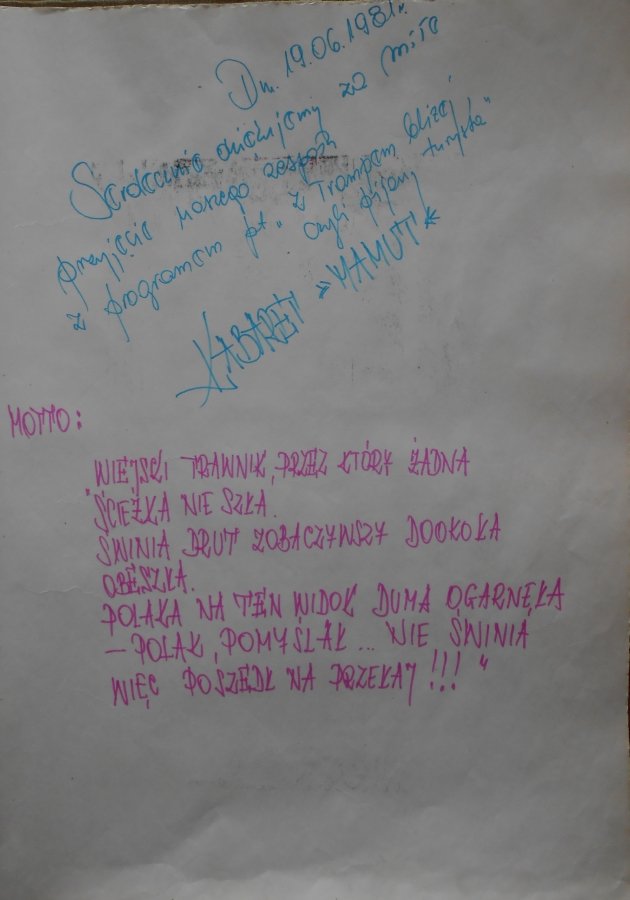 Dn. 19.06.1981r.
Serdecznie dziękujemy za miłe
przyjęcie naszego zespołu
z programem pt. „Z Trampem bliżej
czyli pijany turysta"
KABARET »MAMUT«
MOTTO:
"WIEJSKI TRAWNIK, PRZEZ KTÓRY ŻADNA
ŚCIEŻKA NIE SZŁA.
ŚWINIA DRUT ZOBACZYWSZY DOOKOŁA
OBESZŁA.
POLAKA NA TEN WIDOK DUMA OGARNĘŁA
– POLAK, POMYŚLAŁ... NIE ŚWINIA
WIĘC POSZEDŁ NA PRZEŁAJ!!!"